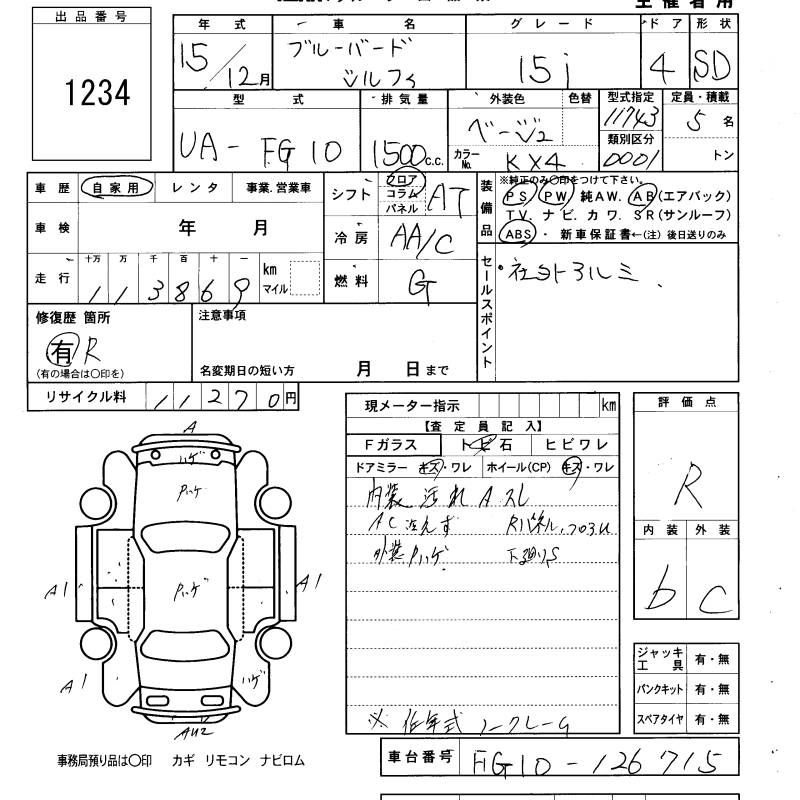 出品番号
1234
年式 車名 グレード ドア 形状
15/12月 ブルーバード シルフィ 15i 4 SD
型式 排気量 外装色 色替 型式指定 定員・積載
UA-FG10 1500c.c. ベージュ2 11743 5名
カラーNo. KX4 類別区分 0001 トン
車歴 自家用 レンタ 事業.営業車
シフト フロア コラム パネル AT
装備品 ※純正のみ○印をつけて下さい。
PS PW 純AW. AB(エアバッグ)
TV. ナビ. カワ. SR(サンルーフ)
ABS・ 新車保証書←(注) 後日送りのみ
車検 年 月
冷房 AA/C
走行 十万 万 千 百 十 一
113869 km マイル
燃料 G
セールスポイント
・社外アルミ
修復歴 箇所
有 R
(有の場合は○印を)
注意事項
名変期日の短い方 月 日まで
リサイクル料 11270円
現メーター指示 km
【査定員記入】
Fガラス トビ石 ヒビワレ
ドアミラー キズ・ワレ ホイール(CP) キズ・ワレ
内装 汚れ A スレ
AC 冷えず Rパネル
外装 Pハゲ 下廻りS
※ 低年式 ノークレーム
評価点
R
内装 外装
b C
ジャッキ 工具 有・無
パンクキット 有・無
スペアタイヤ 有・無
A
ハゲ
Pハゲ
Pハゲ
A1
A1
A1
ハゲ
AU2
事務局預り品は○印 カギ リモコン ナビロム
車台番号 FG10-126715